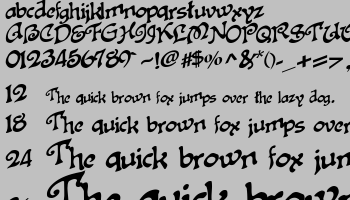 abcdefghijklmnopqrstuvwxyz
ABCDEFGHIJKLMNOPQRSTU
0123456789 ~!@#$%^&*()-_+=>
12 The quick brown fox jumps over the lazy dog.
18 The quick brown fox jumps over
24 The quick brown fox jum
The quick brown